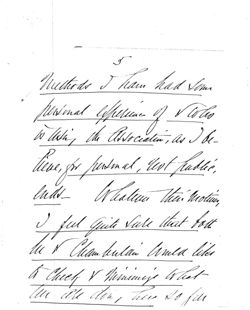 5
Methods I have had some
personal experience of & tries
to use, the Association, as I be-
lieve, for personal, not public,
ends— Whatever their motives
I feel quite sure that both
he & Chamberlain would like
to check & minimize what
we are doing, have so far